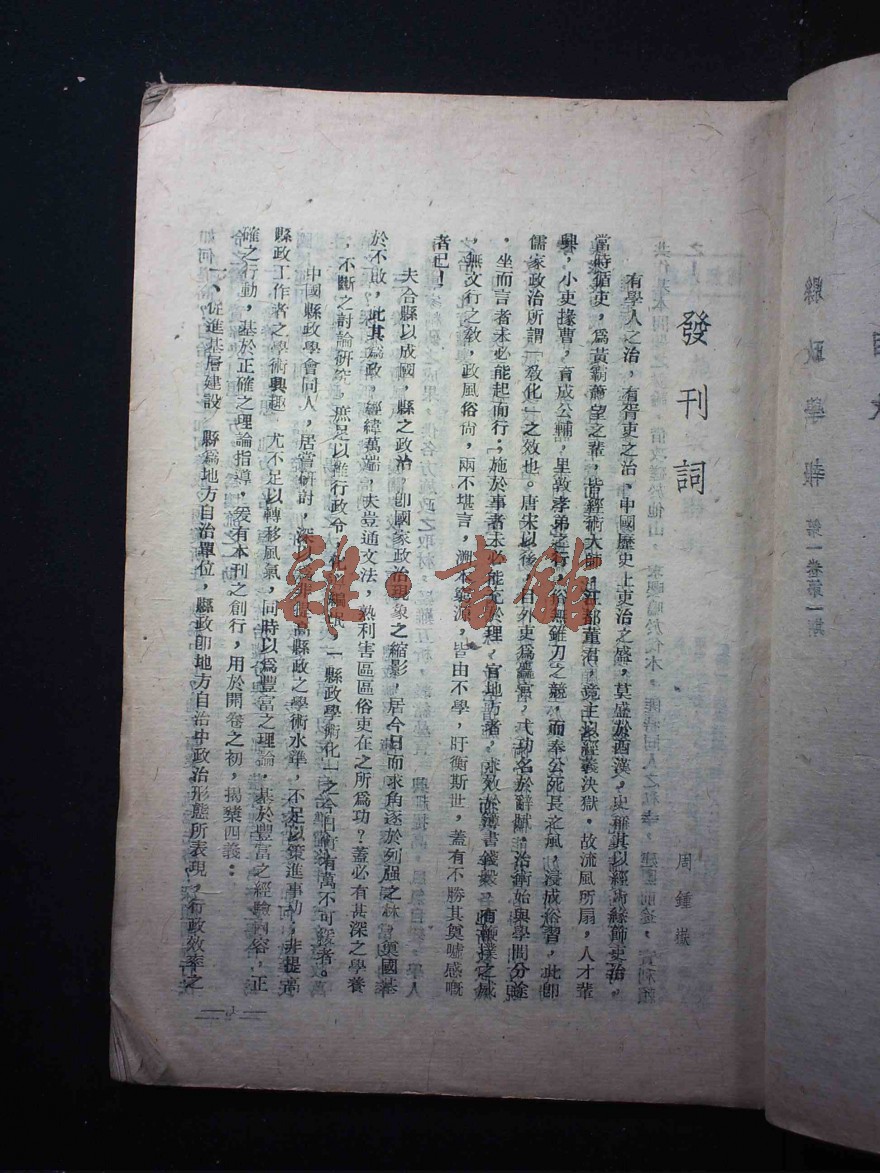 縣政學報 第一卷第一期
發刊詞
周鍾嶽
有學人之治,有胥吏之治,中國歷史上吏治之盛,莫盛於西漢,史稱其以經術緣飾吏治,
當時循吏,爲黃霸蕭望之輩,皆經術大師,江都董君,竟主以經義決獄。故流風所扇,人才輩
興,小吏掾曹,育成公輔,里敦孝弟之行,俗無錐刀之競,而奉公死長之風,浸成俗習,此卽
儒家政治所謂「敎化」之效也。唐宋以後,目外吏爲麤官,弋功名於辭賦,治術始與學問分途
,坐而言者未必能起而行;施於事者未必能允於理,官地方者,求效於簿書錢穀,有鞭撲之威
,無文行之敎,政風俗尙,兩不堪言,溯本窮源,皆由不學,盱衡斯世,蓋有不勝其奠噓感嘅
者已!
夫合縣以成國,縣之政治,卽國家政治現象之縮影,居今日而求角逐於列强之林,奠國基
於不敗,此其爲政,經緯萬端,夫豈通文法,熟利害區區俗吏在之所爲功?蓋必有甚深之學養
,不斷之討論研究,庶足以推行政令,化
「縣政學術化」之今日所有萬不可緩者。
中國縣政學會同人,居嘗研討,深
非提高縣政之學術水準,不足以策進事功,非提高
縣政工作者之學術興趣 尤不足以轉移風氣,同時以爲豐富之理論,基於豐富之經驗內容,正
確之行動,基於正確之理論指導,爰有本刊之創行,用於開卷之初,揭櫫四義:
一、促進基層建設 縣爲地方自治單位,縣政卽地方自治中政治形態所表現,行政效率之
雜·書館